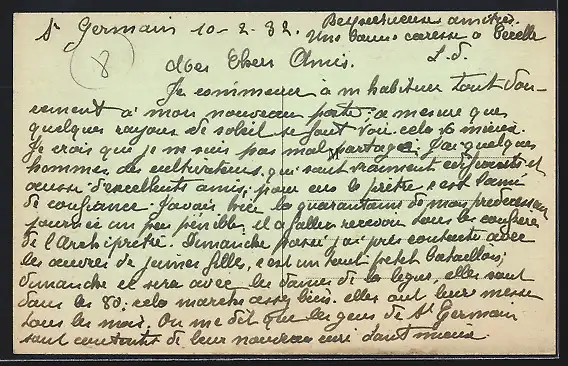 St Germain 10-2-32. Respectueuses amitiés.
Une bonne caresse à
8
L. d.
Mes Chers Amis.
Je commence à m habituer tout dou-
cement à mon nouveau poste; a mesure que
quelques rayons de soleil se font voir cela va mieux.
Je crois que je ne suis pas mal partagé. J'ai quelques
hommes, des cultivateurs, qui sont vraiment et
aussi d'excellents amis; pour eux le prêtre, c'est l'ami
de confiance. J'avais hier la quarantaine de mon prédécesseur
journée un peu pénible, il a fallu recevoir tous les confrères
de l'Archiprêtré. Dimanche passé j'ai pris contacte avec
les œuvres de jeunes filles, c'est un tout petit bataillon;
dimanche ce sera avec les dames de la ligue, elles sont
dans les 80; cela marche assez bien. elles ont leur messe
tous les mois. On me dit que les gens de St Germain
sont contents de leur nouveau curé tant mieux.